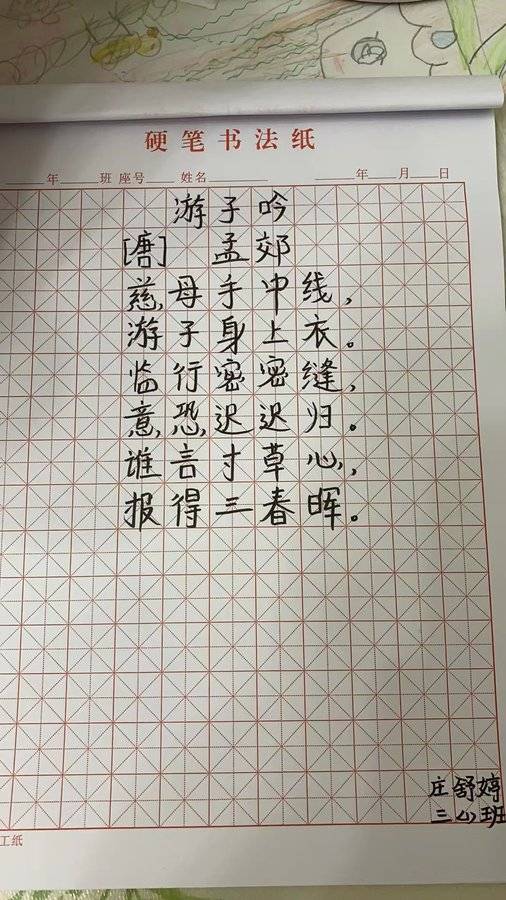 硬笔书法纸
年 班 座号 姓名 年 月 日
游子吟
[唐] 孟郊
慈母手中线，
游子身上衣。
临行密密缝，
意恐迟迟归。
谁言寸草心，
报得三春晖。
庄舒婷
三(4)班
工纸